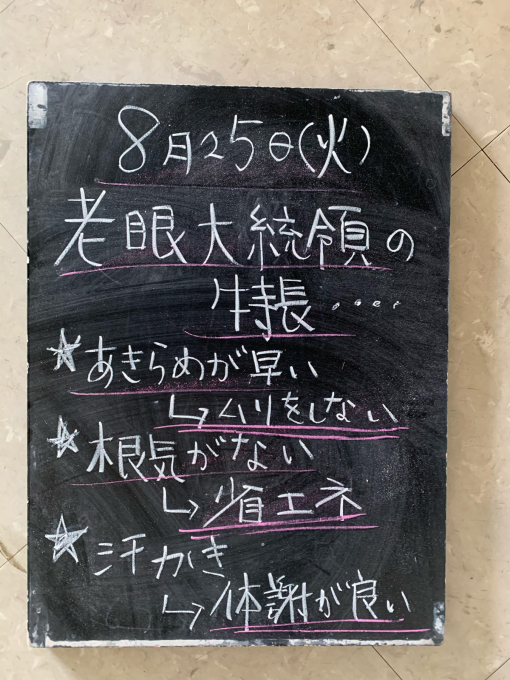 8月25日(火)
老眼大統領の
特長・・・・・
☆あきらめが早い
↳ムリをしない
☆根気がない
↳省エネ
☆汗かき
↳体謝が良い